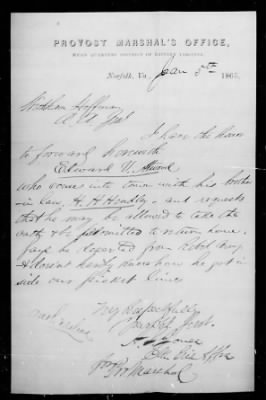 PROVOST MARSHAL'S OFFICE,
HEAD QUARTERS DISTRICT OF EASTERN VIRGINIA,
Norfolk, Va., Jan 5th 1865.
Hoffman
A. A. Genl
I have the honor
to forward herewith
Edward U.
who comes into town with his brother
in law, H. H. and requests
that he may be allowed to take the
oath & be permitted to return home.
Says he deserted from rebel Army
& doesn't hardly know how he got in
side our picket lines
Very Respectfully
Your Obt Servt.
A.
for Pro Marshal